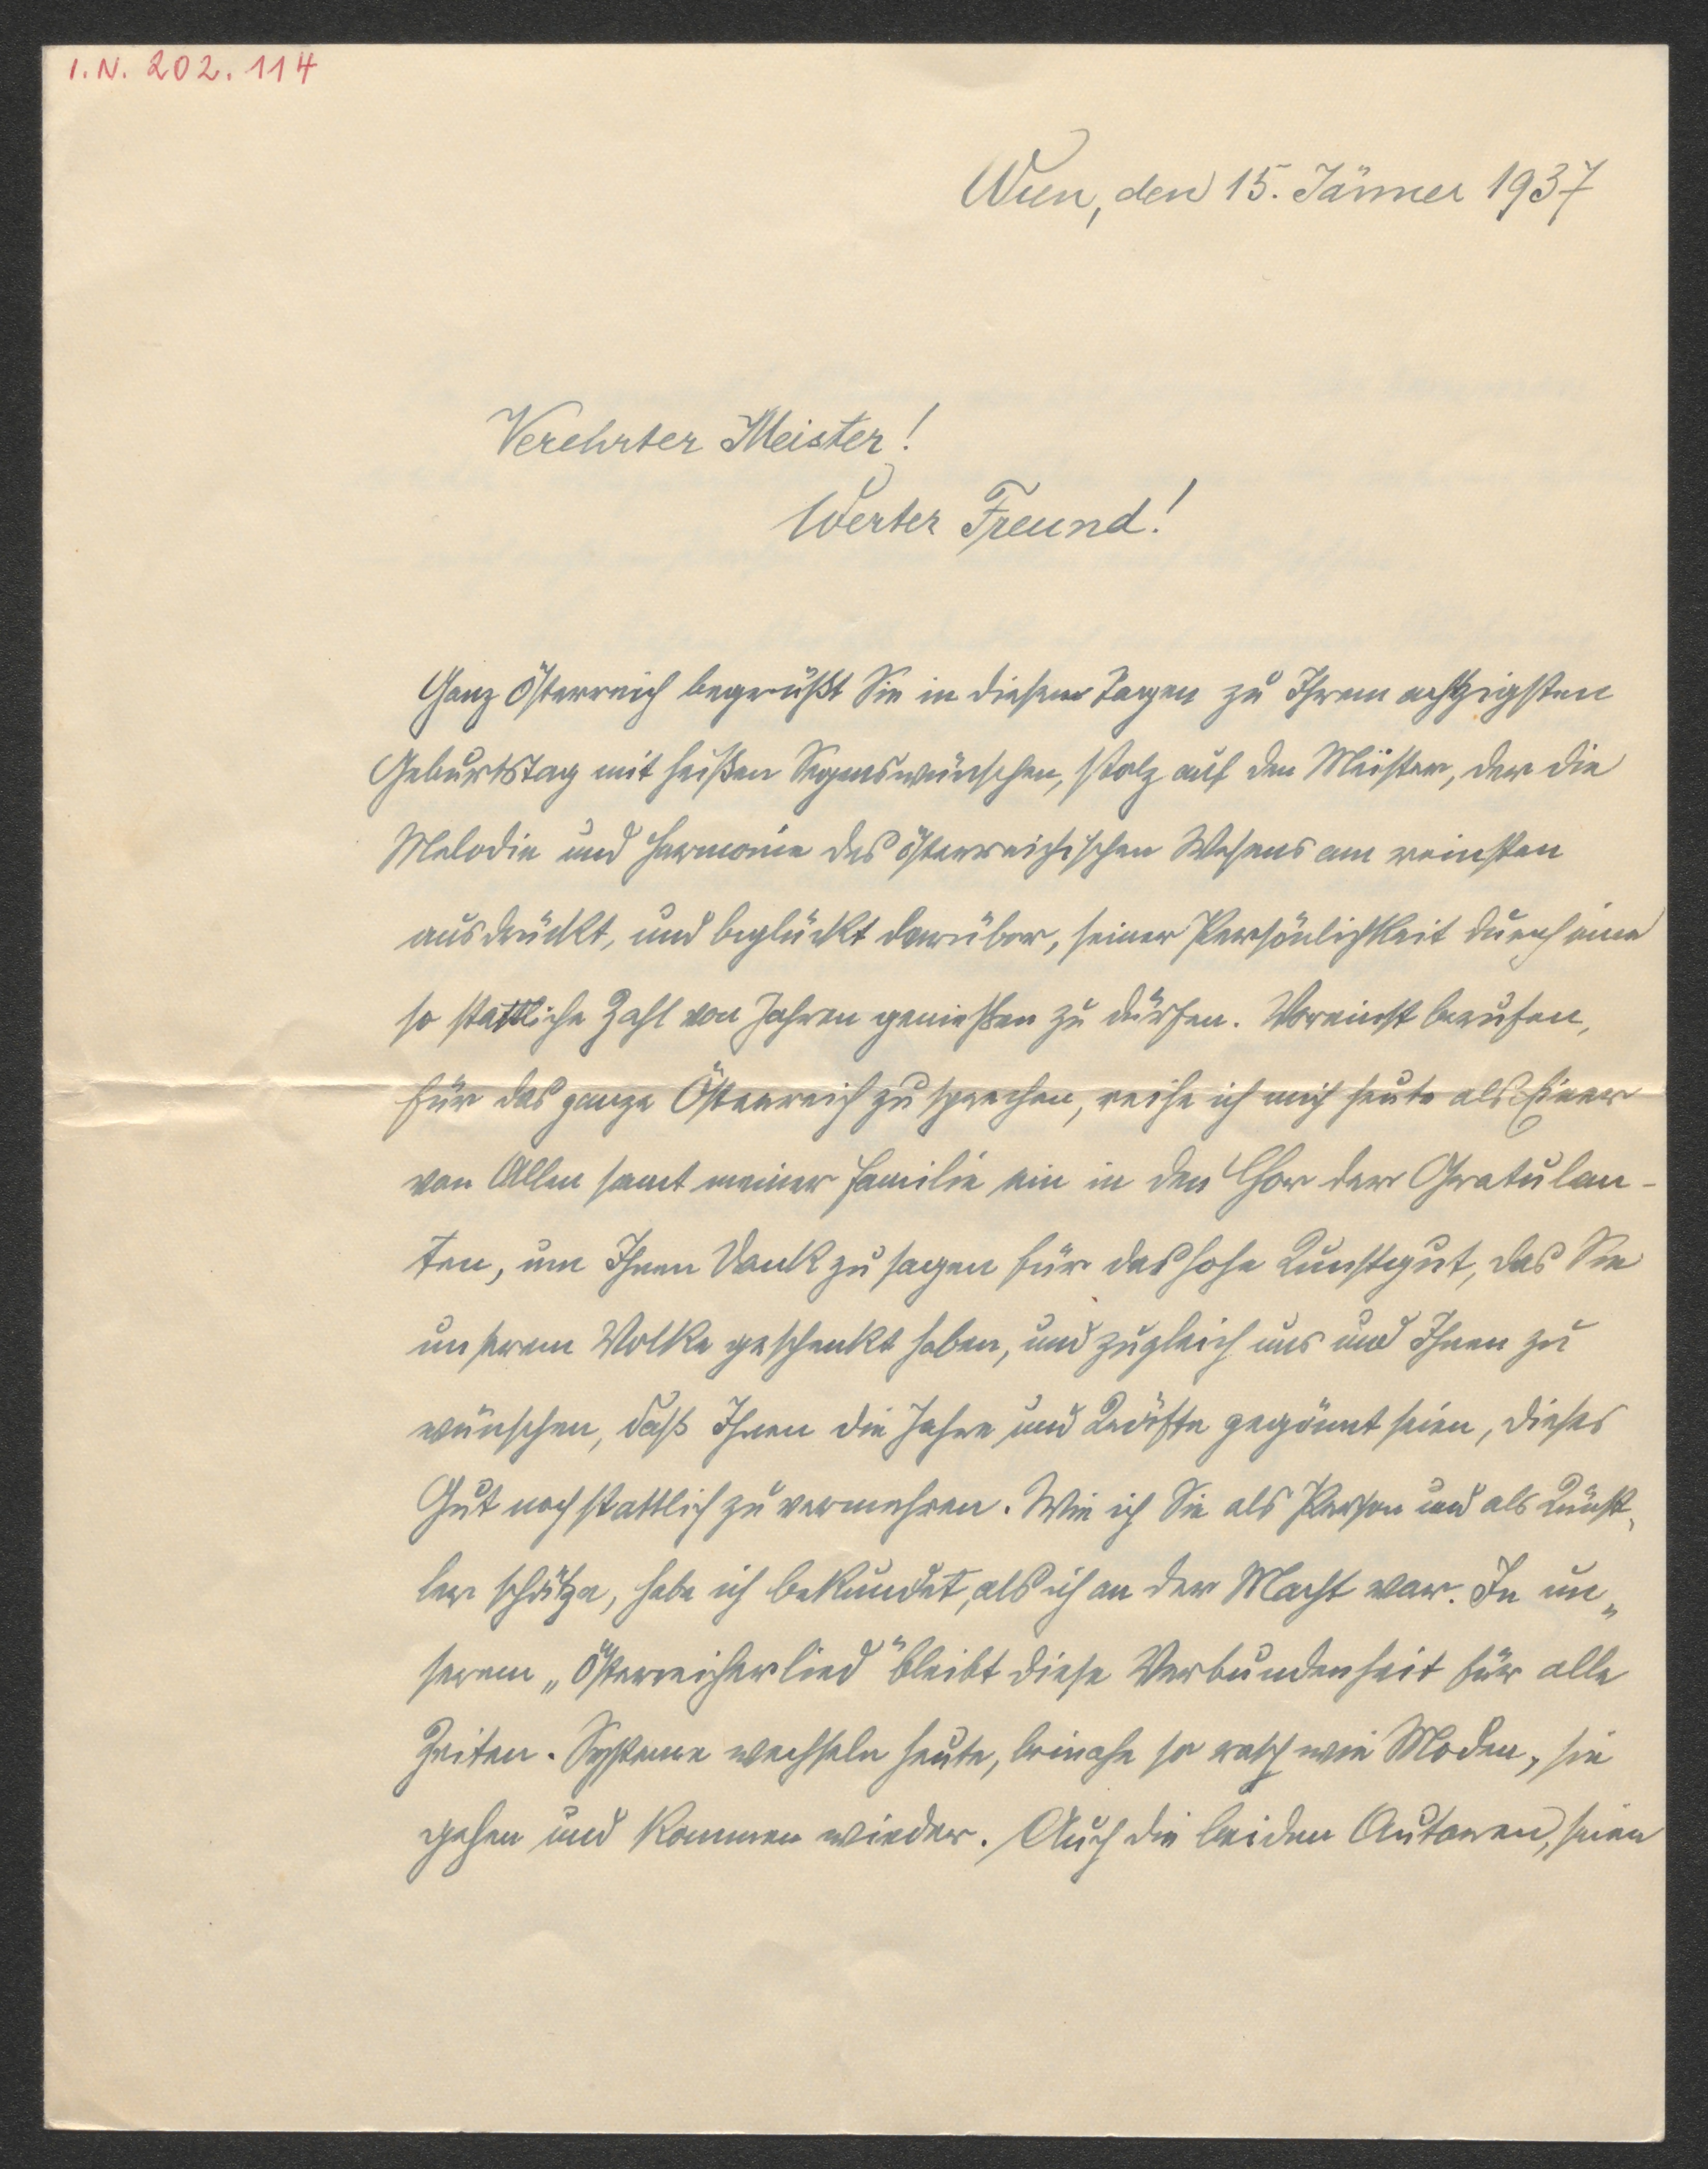 I.N. 202.114
Wien, den 15. Jänner 1937
Verehrter Meister!
Werter Freund!
Ganz Österreich begrüßt Sie in diesen Tagen zu Ihrem achtzigsten
Geburtstag mit heißen Segenswünschen, stolz auf den Meister, der die
Melodie und Harmonie des österreichischen Wesens am reinsten
ausdrückt, und beglückt darüber, seiner Persönlichkeit durch eine
so stattliche Zahl von Jahren genießen zu dürfen. Voreinst berufen,
für das ganze Österreich zu sprechen, reihe ich mich heute als Einer
von Allen samt meiner Familie ein in den Chor der Gratulan-
ten, um Ihnen Dank zu sagen für das hohe Kunstgut, das Sie
unserem Volke geschenkt haben, und zugleich uns und Ihnen zu
wünschen, daß Ihnen die Jahre und Kräfte gegönnt seien, dieses
Gut noch stattlich zu vermehren. Wie ich Sie als Person und als Künst-
ler schätze, habe ich bekundet, als ich an der Macht war. In un-
serem „Österreicherlied" bleibt diese Verbundenheit für alle
Zeiten. Systeme wechseln heute, beinahe so rasch wie Moden, sie
gehen und kommen wieder. Auch die beiden Autoren, seien